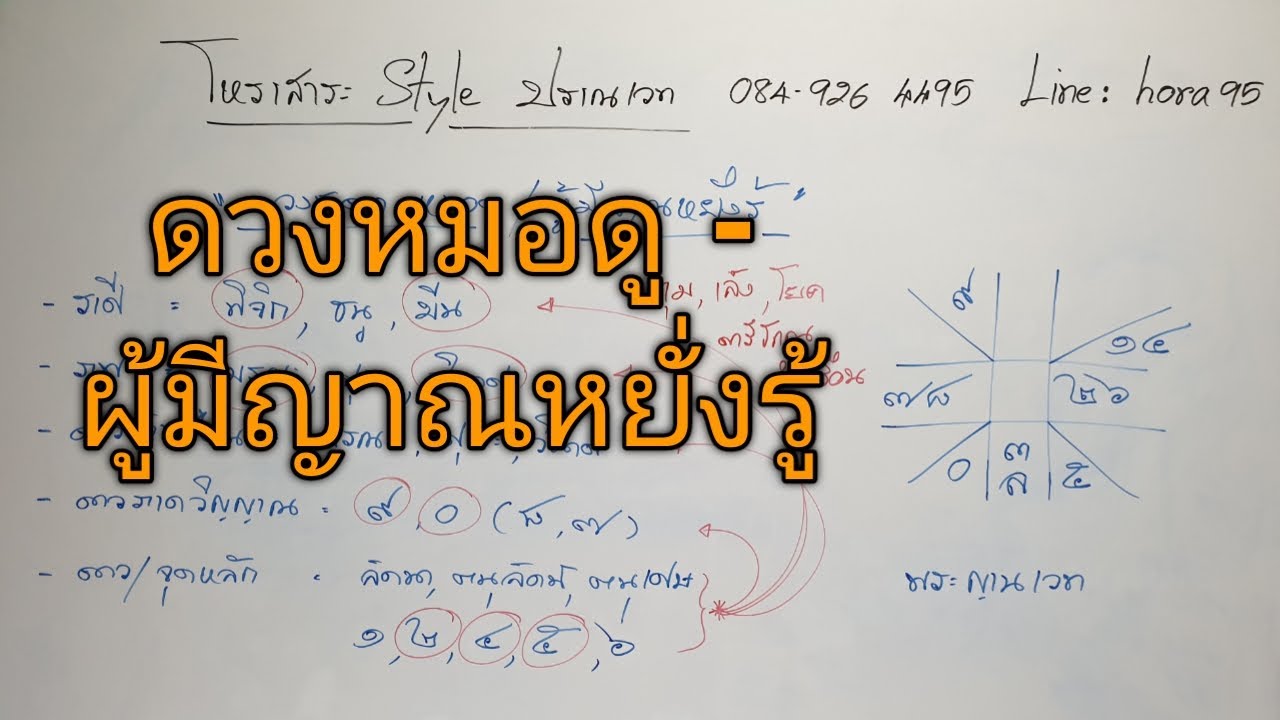 โหราสาระ Style ปราณเวท 084-926 4495 Line: hora95
ดวงหมอดู -
ผู้มีญาณหยั่งรู้
- ราศี = พิจิก, ธนู, มีน
กุม, เล็ง, โยค
ตรีโกณ
- ดาวภาควิญญาณ = ๙, ๐ (๘, ๗)
- ดาว/จุดหลัก = ลัคนา, ตนุลัคน์, ตนุเศษ
๑, ๒, ๔, ๕, ๖
๙
๑ ๔
๗ ๘
๒ ๖
๐
๓
ล
๕
พระญาณเวท